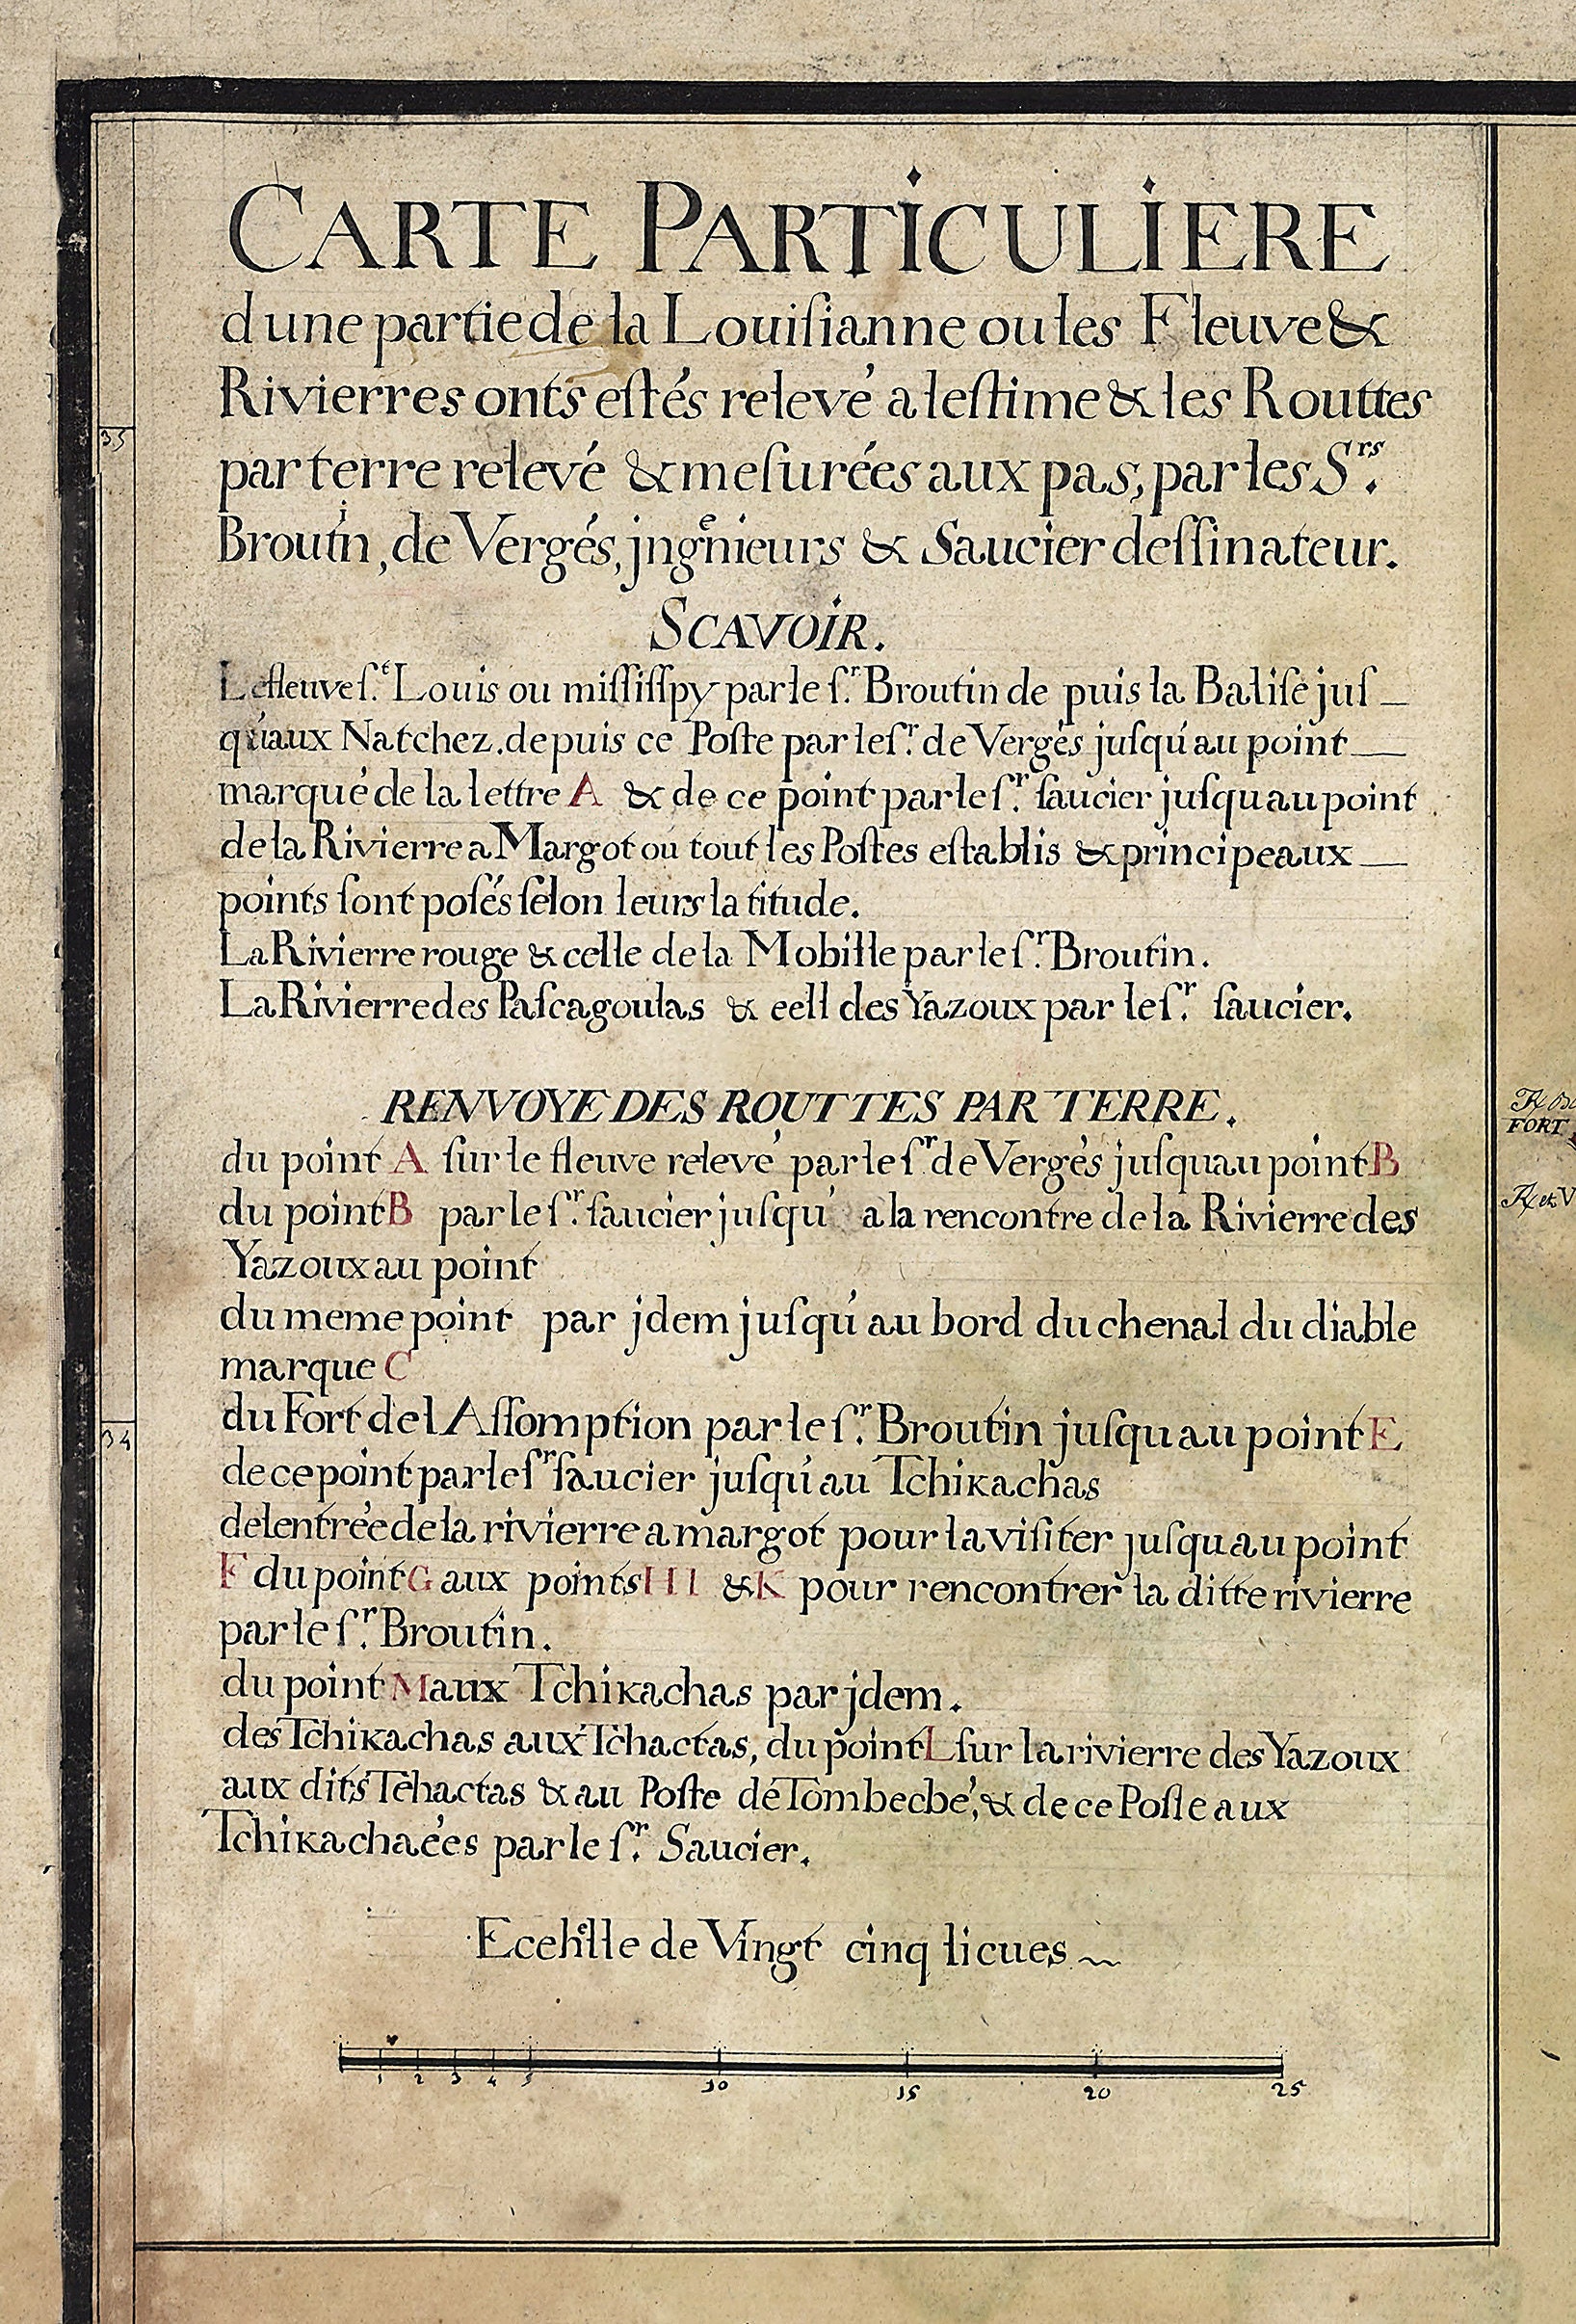 CARTE PARTICULIERE
dune partie de la Louiſianne ou les Fleuve &
Rivierres onts eſtés relevé a leſtime & les Routtes
par terre relevé & meſurées aux pas, par les S.rs
Broutin, de Vergés, jngenieurs & Saucier deſſinateur.
SCAVOIR.
Le fleuve ſ.t Louis ou miſſiſſpy par le ſ.r Broutin de puis la Baliſe juſ_
qu'aux Natchez. depuis ce Poſte par le ſ.r de Vergés juſqu'au point__
marqué de la lettre A & de ce point par le ſ.r ſaucier juſquau point
de la Rivierre a Margot ou tout les Poſtes eſtablis & principeaux__
points ſont poſés ſelon leurs latitude.
La Rivierre rouge & celle de la Mobille par le ſ.r Broutin.
La Rivierre des Paſcagoulas & eell des Yazoux par le ſ.r ſaucier.
RENVOYE DES ROUTTES PAR TERRE.
du point A ſur le fleuve relevé par le ſ.r de Vergés juſquau point B
du point B par le ſ.r ſaucier juſqu' a la rencontre de la Rivierre des
Yazoux au point
du meme point par jdem juſqu'au bord du chenal du diable
marque C
du Fort de l Aſſomption par le ſ.r Broutin juſquau point E
de ce point par le ſ.r ſaucier juſqu'au Tchikachas
de lentrée de la rivierre a margot pour la viſiter juſquau point
F du point G aux points H I & K pour rencontrer la ditte rivierre
par le ſ.r Broutin.
du point M aux Tchikachas par jdem.
des Tchikachas aux Tchactas, du point L ſur la rivierre des Yazoux
aux dits Tchactas & au Poſte de Tombecbé, & de ce Poſte aux
Tchikachaées par le ſ.r Saucier.
Ecehlle de Vingt cinq lieues
1 2 3 4 5 10 15 20 25
35
34
FORT